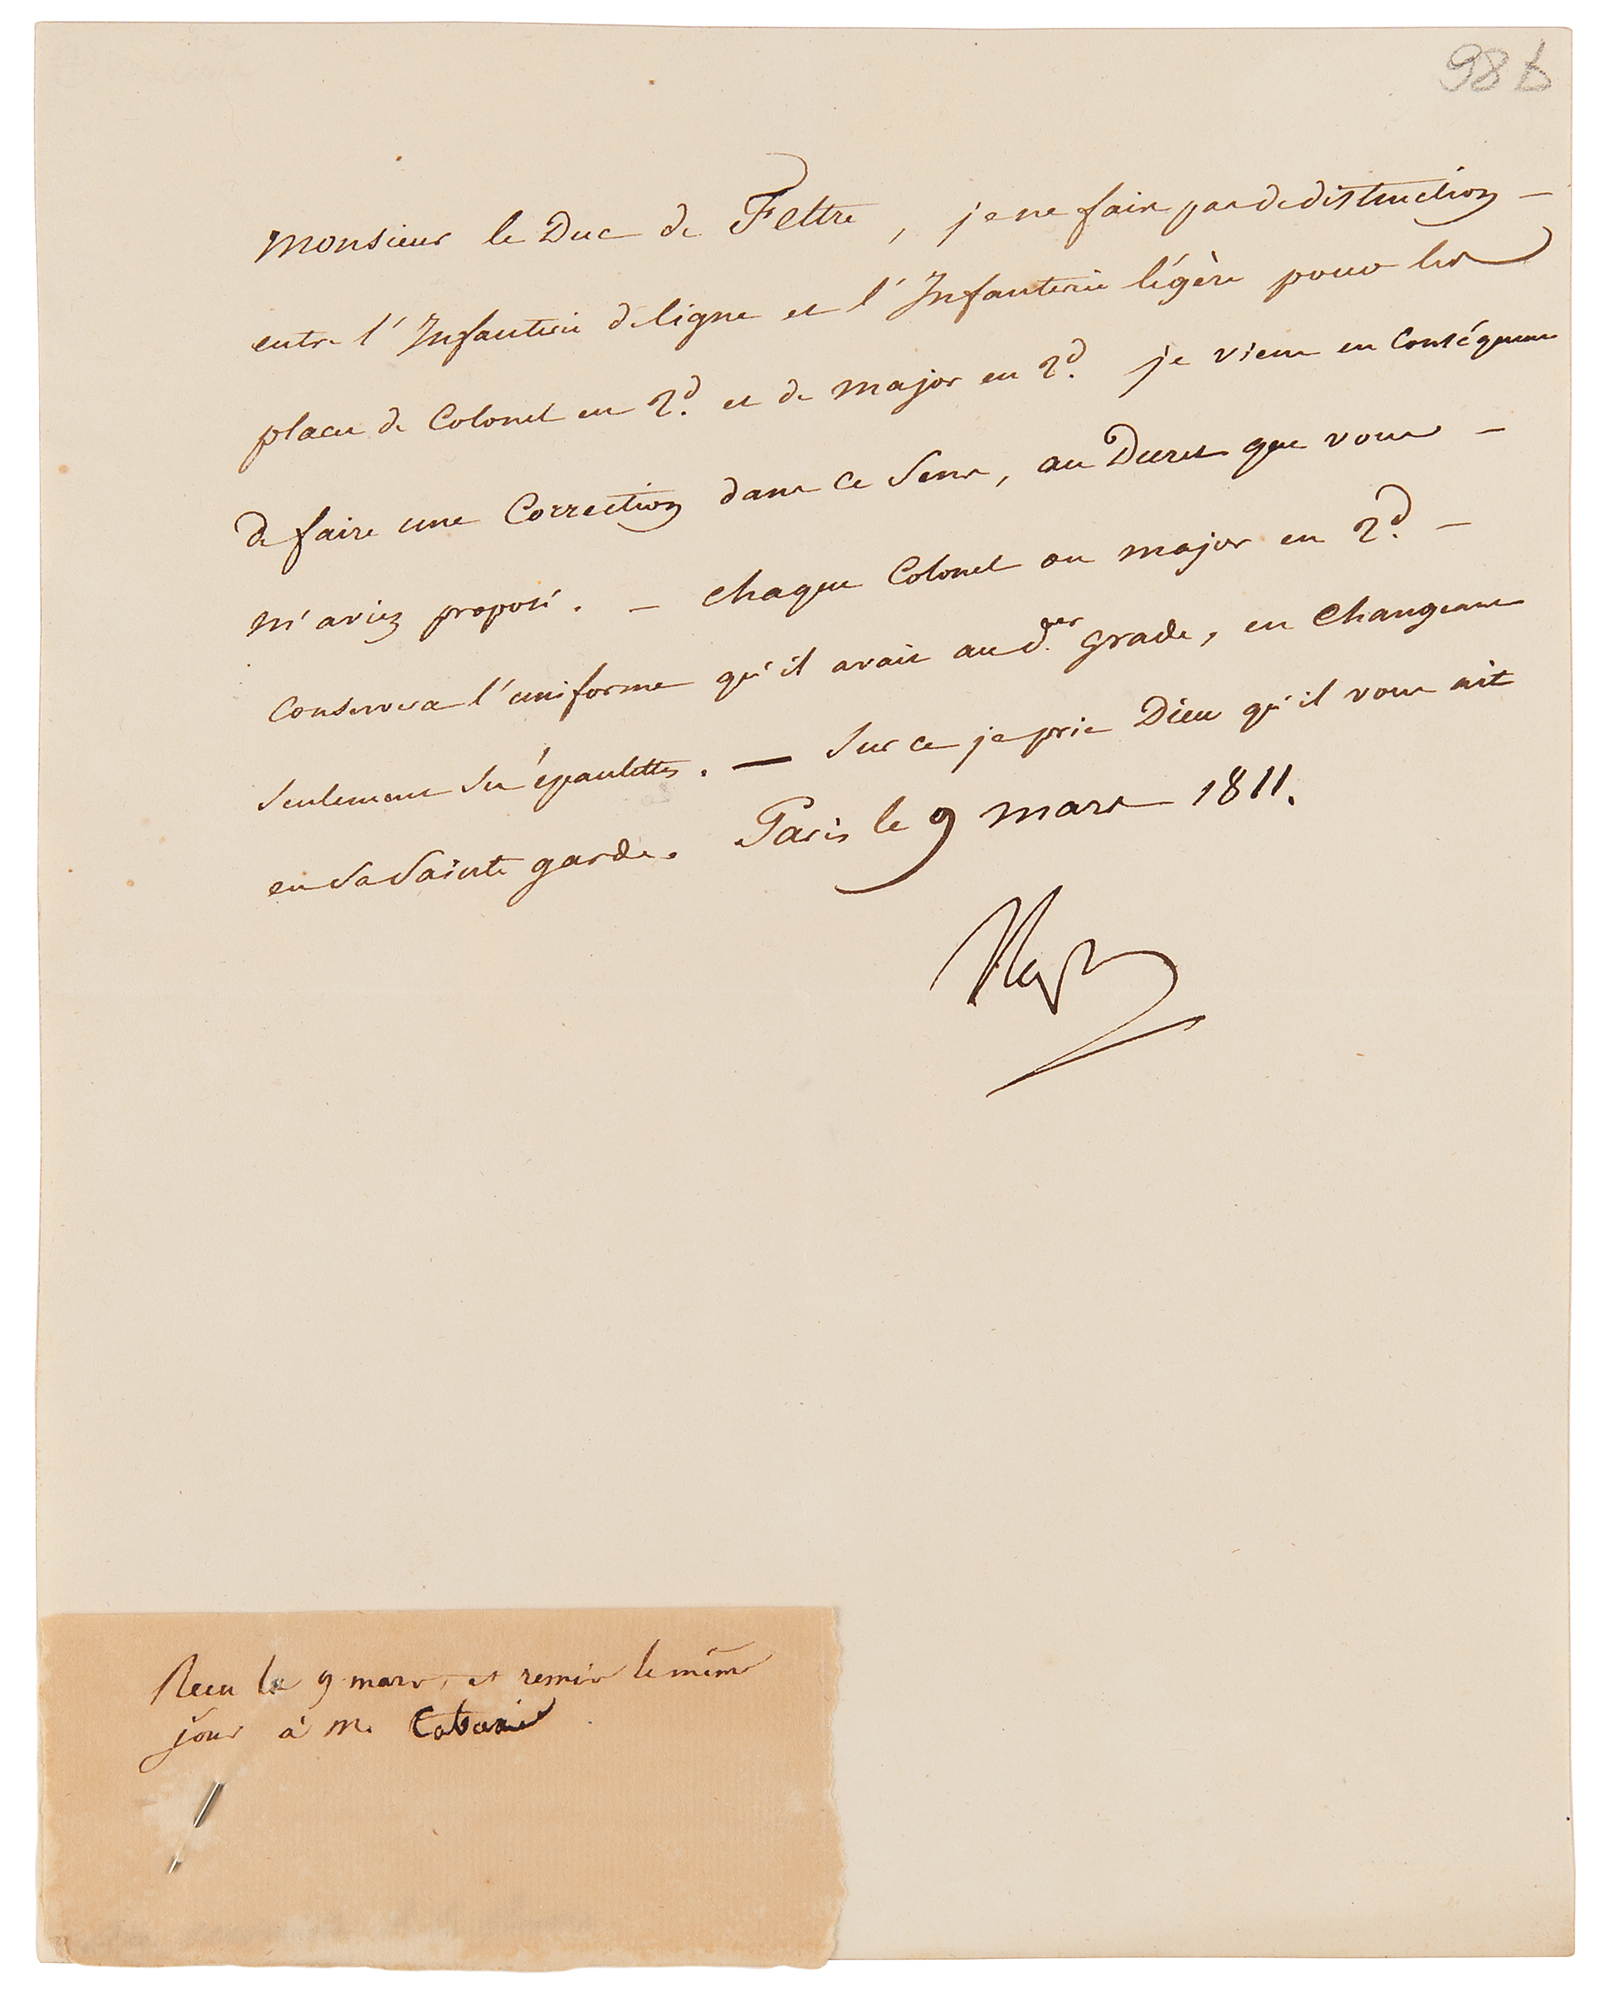 98 b
Monsieur le Duc de Feltre, je ne fais pas de distinction —
entre l'Infanterie de ligne et l'Infanterie légère pour les
places de Colonel en 2d. et de major en 2d. je viens en Conséquence
de faire une Correction dans ce sens, au Décret que vous —
m'aviez proposé. — Chaque Colonel ou major en 2d. —
Conservera l'uniforme qu'il avait au der. grade, en changeant
seulement ses épaulettes. — Sur ce je prie Dieu qu'il vous ait
en sa Sainte garde. Paris le 9 mars 1811.
Nap
Recu le 9 mars, et remis le même
jour à M.